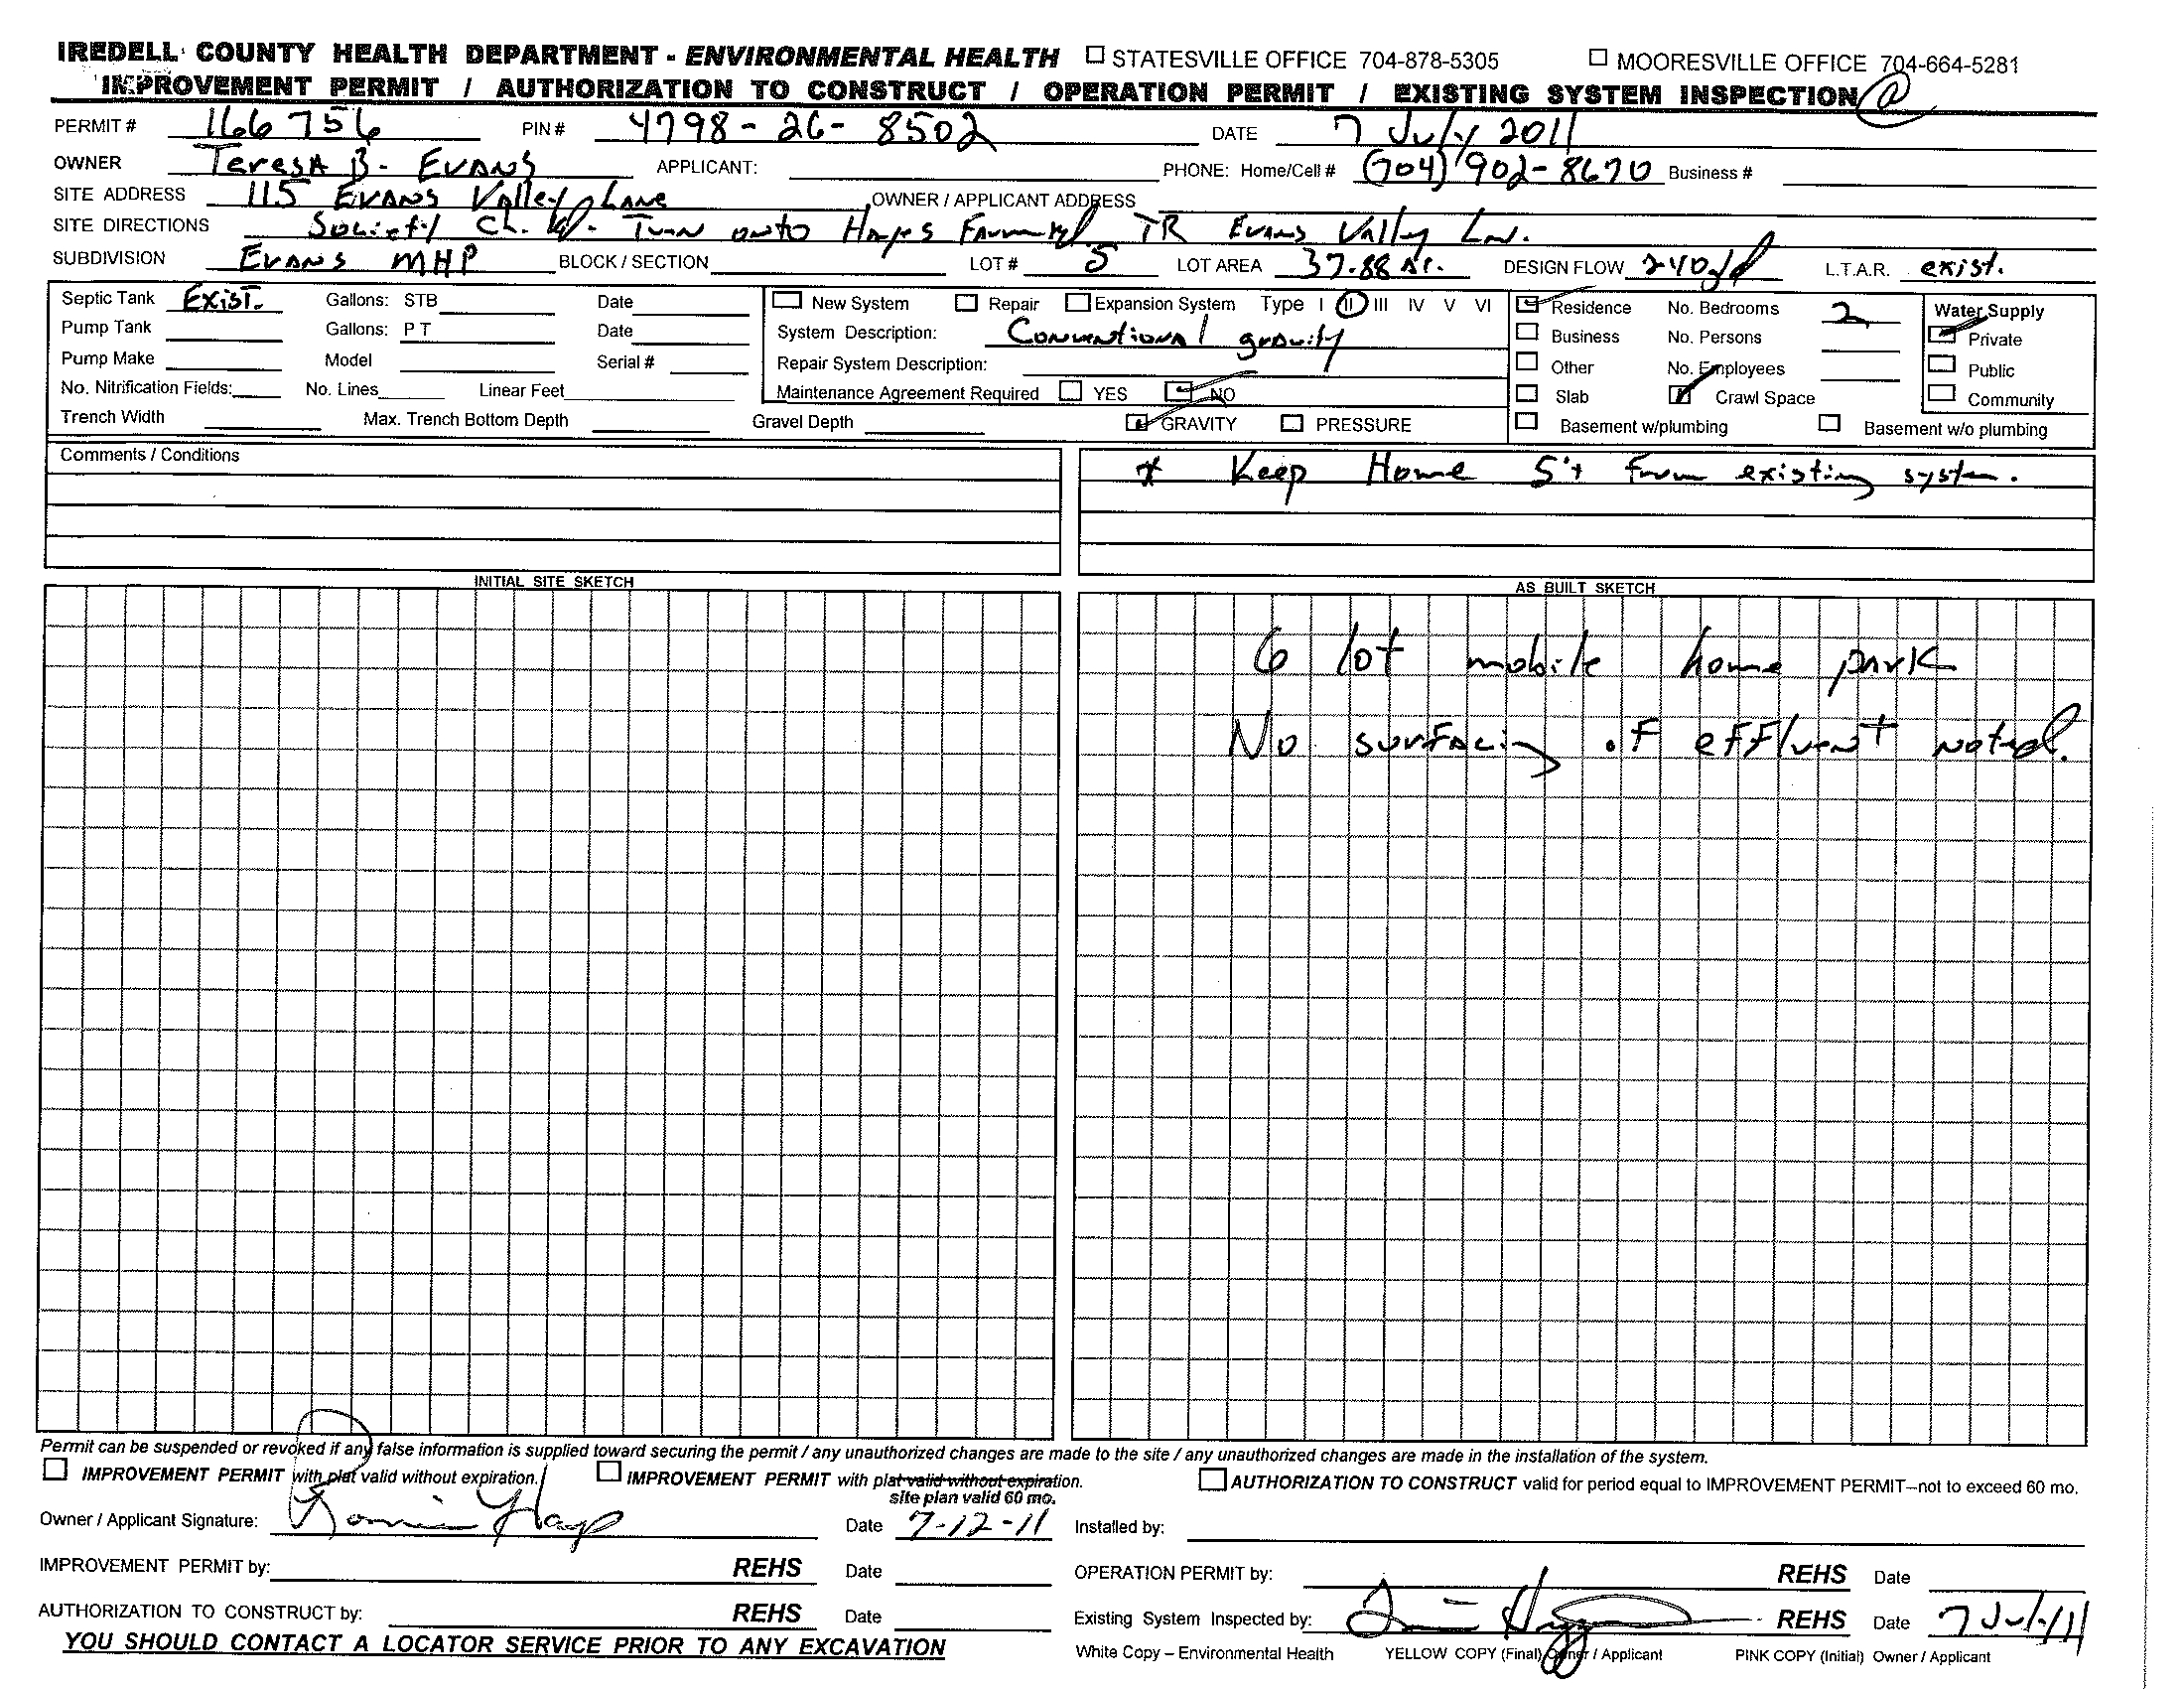 IREDELL COUNTY HEALTH DEPARTMENT - ENVIRONMENTAL HEALTH ☐ STATESVILLE OFFICE 704-878-5305 ☐ MOORESVILLE OFFICE 704-664-5281
IMPROVEMENT PERMIT / AUTHORIZATION TO CONSTRUCT / OPERATION PERMIT / EXISTING SYSTEM INSPECTION
PERMIT # 166756 PIN # 4798-26-8502 DATE 7 July 2011
OWNER Teresa B. Evans APPLICANT: PHONE: Home/Cell # (704) 902-8670 Business #
SITE ADDRESS 115 Evans Valley Lane OWNER / APPLICANT ADDRESS
SITE DIRECTIONS Society Ch. Rd. Turn onto Hayes Farm Rd TR Evans Valley Ln.
SUBDIVISION Evans MHP BLOCK / SECTION LOT # 5 LOT AREA 37.88 Ac. DESIGN FLOW 240 g/d L.T.A.R. exist.
Septic Tank Exist. Gallons: STB Date ☐ New System ☐ Repair ☐ Expansion System Type I II III IV V VI ☑ Residence No. Bedrooms 2 Water Supply
Pump Tank Gallons: P T Date System Description: Conventional gravity ☐ Business No. Persons ☑ Private
Pump Make Model Serial # Repair System Description: ☐ Other No. Employees ☐ Public
No. Nitrification Fields: No. Lines Linear Feet Maintenance Agreement Required ☐ YES ☑ NO ☐ Slab ☑ Crawl Space ☐ Community
Trench Width Max. Trench Bottom Depth Gravel Depth ☑ GRAVITY ☐ PRESSURE ☐ Basement w/plumbing ☐ Basement w/o plumbing
Comments / Conditions
* Keep Home 5'+ from existing system.
INITIAL SITE SKETCH
AS BUILT SKETCH
6 lot mobile home park
No surfacing of effluent noted.
Permit can be suspended or revoked if any false information is supplied toward securing the permit / any unauthorized changes are made to the site / any unauthorized changes are made in the installation of the system.
☐ IMPROVEMENT PERMIT with plat valid without expiration. ☐ IMPROVEMENT PERMIT with plat valid without expiration. ☐ AUTHORIZATION TO CONSTRUCT valid for period equal to IMPROVEMENT PERMIT–not to exceed 60 mo.
site plan valid 60 mo.
Owner / Applicant Signature: Date 7-12-11 Installed by:
IMPROVEMENT PERMIT by: REHS Date OPERATION PERMIT by: REHS Date
AUTHORIZATION TO CONSTRUCT by: REHS Date Existing System Inspected by: REHS Date 7 July 11
YOU SHOULD CONTACT A LOCATOR SERVICE PRIOR TO ANY EXCAVATION
White Copy – Environmental Health YELLOW COPY (Final) Owner / Applicant PINK COPY (Initial) Owner / Applicant